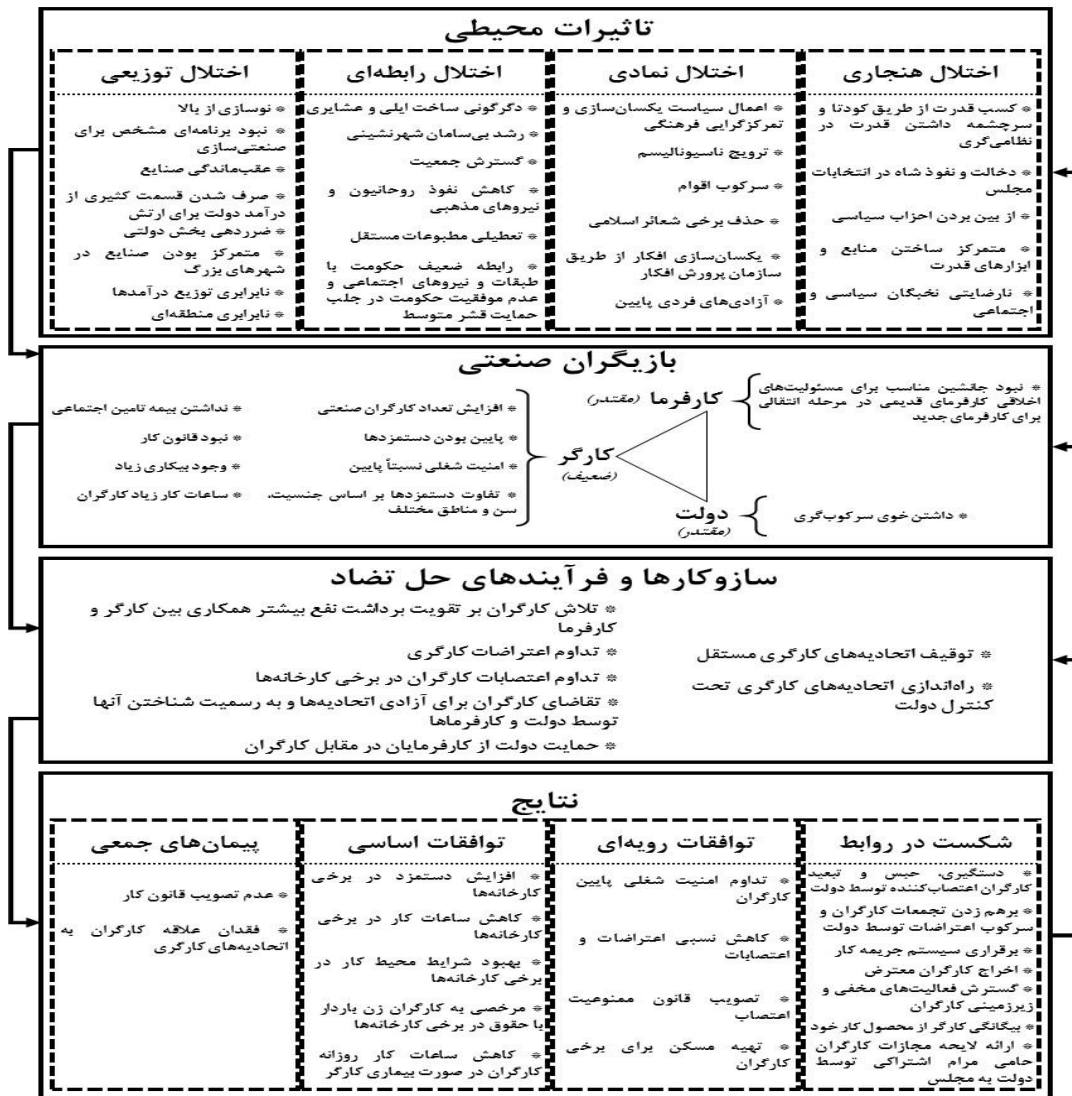 تاثیرات محیطی
اختلال هنجاری
* کسب قدرت از طریق کودتا و
سرچشمه داشتن قدرت در
نظامی‌گری
* دخالت و نفوذ شاه در انتخابات
مجلس
* از بین بردن احزاب سیاسی
* متمرکز ساختن منابع و
ابزارهای قدرت
* نارضایتی نخبگان سیاسی و
اجتماعی
اختلال نمادی
* اعمال سیاست یکسان‌سازی و
تمرکزگرایی فرهنگی
* ترویج ناسیونالیسم
* سرکوب اقوام
* حذف برخی شعائر اسلامی
* یکسان‌سازی افکار از طریق
سازمان پرورش افکار
* آزادی‌های فردی پایین
اختلال رابطه‌ای
* دگرگونی ساخت ایلی و عشایری
* رشد بی‌سامان شهرنشینی
* گسترش جمعیت
* کاهش نفوذ روحانیون و
نیروهای مذهبی
* تعطیلی مطبوعات مستقل
* رابطه ضعیف حکومت با
طبقات و نیروهای اجتماعی و
عدم موفقیت حکومت در جلب
حمایت قشر متوسط
اختلال توزیعی
* نوسازی از بالا
* نبود برنامه‌ای مشخص برای
صنعتی‌سازی
* عقب‌ماندگی صنایع
* صرف شدن قسمت کثیری از
درآمد دولت برای ارتش
* ضرردهی بخش دولتی
* متمرکز بودن صنایع در
شهرهای بزرگ
* نابرابری توزیع درآمدها
* نابرابری منطقه‌ای
بازیگران صنعتی
* نبود جانشین مناسب برای مسئولیت‌های
اخلاقی کارفرمای قدیمی در مرحله انتقالی
برای کارفرمای جدید
کارفرما
(مقتدر)
کارگر
(ضعیف)
دولت
(مقتدر)
* داشتن خوی سرکوب‌گری
* افزایش تعداد کارگران صنعتی
* پایین بودن دستمزدها
* امنیت شغلی نسبتاً پایین
* تفاوت دستمزدها بر اساس جنسیت،
سن و مناطق مختلف
* نداشتن بیمه تامین اجتماعی
* نبود قانون کار
* وجود بیکاری زیاد
* ساعات کار زیاد کارگران
سازوکارها و فرآیندهای حل تضاد
* توقیف اتحادیه‌های کارگری مستقل
* راه‌اندازی اتحادیه‌های کارگری تحت
کنترل دولت
* تلاش کارگران بر تقویت برداشت نفع بیشتر همکاری بین کارگر و
کارفرما
* تداوم اعتراضات کارگری
* تداوم اعتصابات کارگران در برخی کارخانه‌ها
* تقاضای کارگران برای آزادی اتحادیه‌ها و به رسمیت شناختن آنها
توسط دولت و کارفرماها
* حمایت دولت از کارفرمایان در مقابل کارگران
نتایج
شکست در روابط
* دستگیری، حبس و تبعید
کارگران اعتصاب‌کننده توسط دولت
* برهم زدن تجمعات کارگران و
سرکوب اعتراضات توسط دولت
* برقراری سیستم جریمه کار
* اخراج کارگران معترض
* گسترش فعالیت‌های مخفی و
زیرزمینی کارگران
* بیگانگی کارگر از محصول کار خود
* ارائه لایحه مجازات کارگران
حامی مرام اشتراکی توسط
دولت به مجلس
توافقات رویه‌ای
* تداوم امنیت شغلی پایین
کارگران
* کاهش نسبی اعتراضات و
اعتصابات
* تصویب قانون ممنوعیت
اعتصاب
* تهیه مسکن برای برخی
کارگران
توافقات اساسی
* افزایش دستمزد در برخی
کارخانه‌ها
* کاهش ساعات کار در برخی
کارخانه‌ها
* بهبود شرایط محیط کار در
برخی کارخانه‌ها
* مرخصی به کارگران زن باردار
با حقوق در برخی کارخانه‌ها
* کاهش ساعات کار روزانه
کارگران در صورت بیماری کارگر
پیمان‌های جمعی
* عدم تصویب قانون کار
* فقدان علاقه کارگران به
اتحادیه‌های کارگری